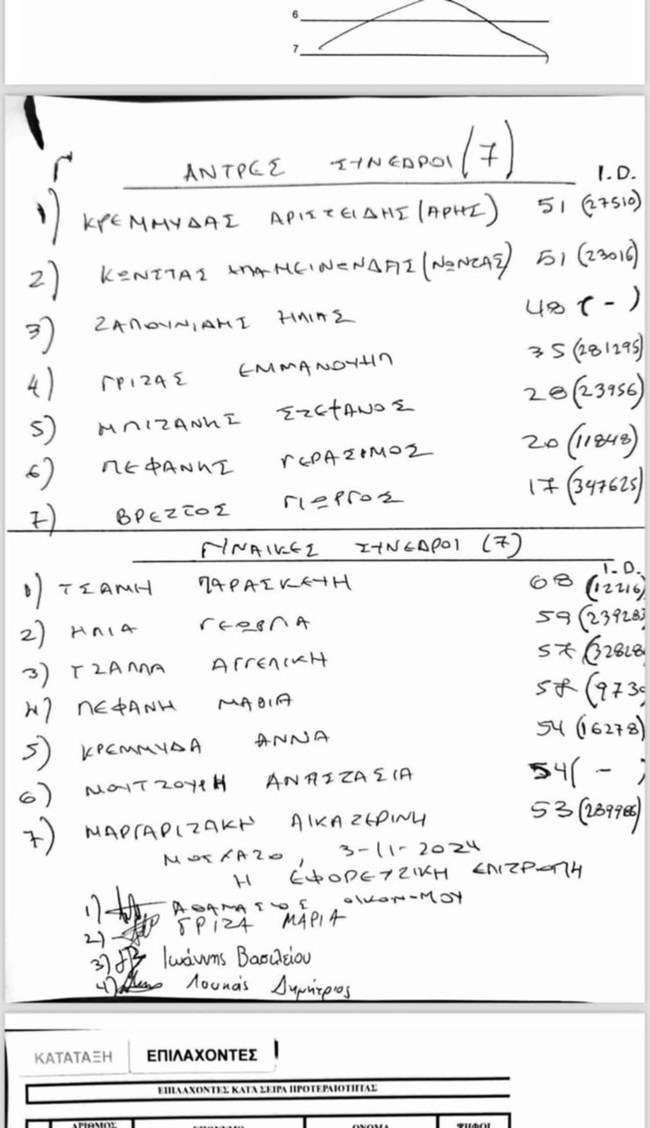 6
7
ΑΝΤΡΕΣ ΣΥΝΕΔΡΟΙ (7)
I.D.
1) ΚΡΕΜΜΥΔΑΣ ΑΡΙΣΤΕΙΔΗΣ (ΑΡΗΣ) 51 (27510)
2) ΚΩΝΣΤΑΣ ΕΠΑΜΕΙΝΩΝΔΑΣ (ΝΩΝΤΑΣ) 51 (23016)
3) ΖΑΠΟΥΝΙΔΗΣ ΗΛΙΑΣ 48 (-)
4) ΓΡΙΖΑΣ ΕΜΜΑΝΟΥΗΛ 35 (281295)
5) ΜΠΙΖΑΝΗΣ ΣΤΕΦΑΝΟΣ 28 (23956)
6) ΠΕΦΑΝΗΣ ΓΕΡΑΣΙΜΟΣ 20 (11848)
7) ΒΡΕΤΤΟΣ ΓΙΩΡΓΟΣ 17 (347625)
ΓΥΝΑΙΚΕΣ ΣΥΝΕΔΡΟΙ (7)
I.D.
1) ΤΣΑΜΗ ΠΑΡΑΣΚΕΥΗ 68 (12216)
2) ΗΛΙΑ 59 (239283
3) ΤΖΑΛΛΑ ΑΓΓΕΛΙΚΗ 57 (32828
4) ΠΕΦΑΝΗ ΜΑΘΙΑ (973
5) ΚΡΕΜΜΥΔΑ ΑΝΝΑ 54 (16278)
6) ΜΟΥΤΖΟΥΡΗ ΑΝΑΣΤΑΣΙΑ 54 (-)
7) ΜΑΡΓΑΡΙΤΑΚΗ ΑΙΚΑΤΕΡΙΝΗ 53 (239986)
ΜΟΣΧΑΤΟ, 3-11-2024
Η ΕΦΟΡΕΥΤΙΚΗ ΕΠΙΤΡΟΠΗ
1) ΑΘΑΝΑΣΙΟΣ
2) ΓΡΙΖΑ ΜΑΡΙΑ
3) Ιωάννης Βασιλείου
4) Λουκάς Δημήτριος
ΚΑΤΑΤΑΞΗ ΕΠΙΛΑΧΟΝΤΕΣ
ΕΠΙΛΑΧΟΝΤΕΣ ΚΑΤΑ ΣΕΙΡΑ ΠΡΟΤΕΡΑΙΟΤΗΤΑΣ
ΑΡΙΘΜΟΣ ΕΠΩΝΥΜΟ ΟΝΟΜΑ ΨΗΦΟΙ